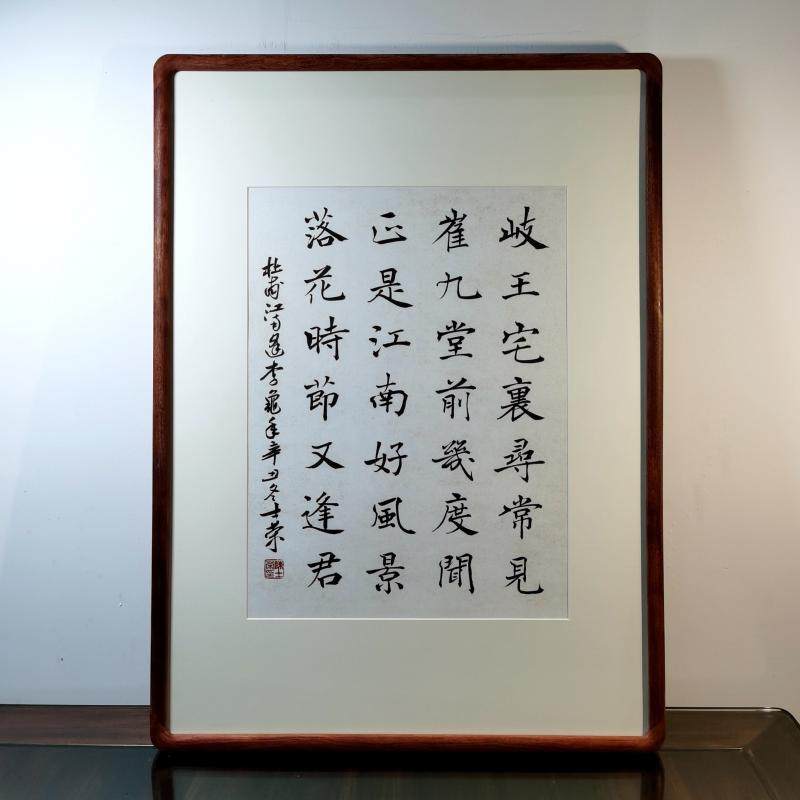 岐王宅裏尋常見
崔九堂前幾度聞
正是江南好風景
落花時節又逢君
杜甫江南逢李龜年辛丑冬士榮